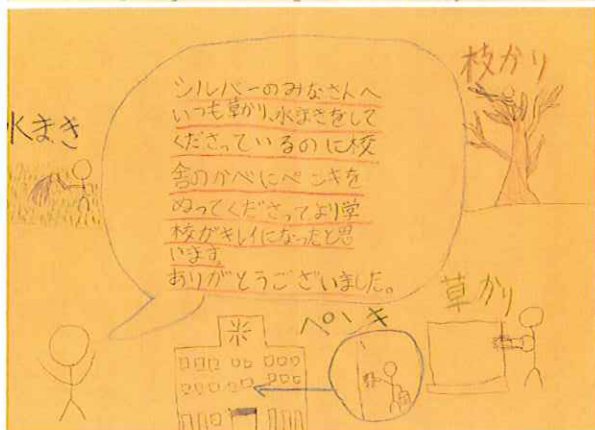 シルバーのみなさんへ
いつも草かり、水まきをして
くださっているのに校
舎のかべにペンキを
ぬってくださってより学
校がキレイになったと思
います。
ありがとうございました。
水まき
枝かり
ペンキ
草かり